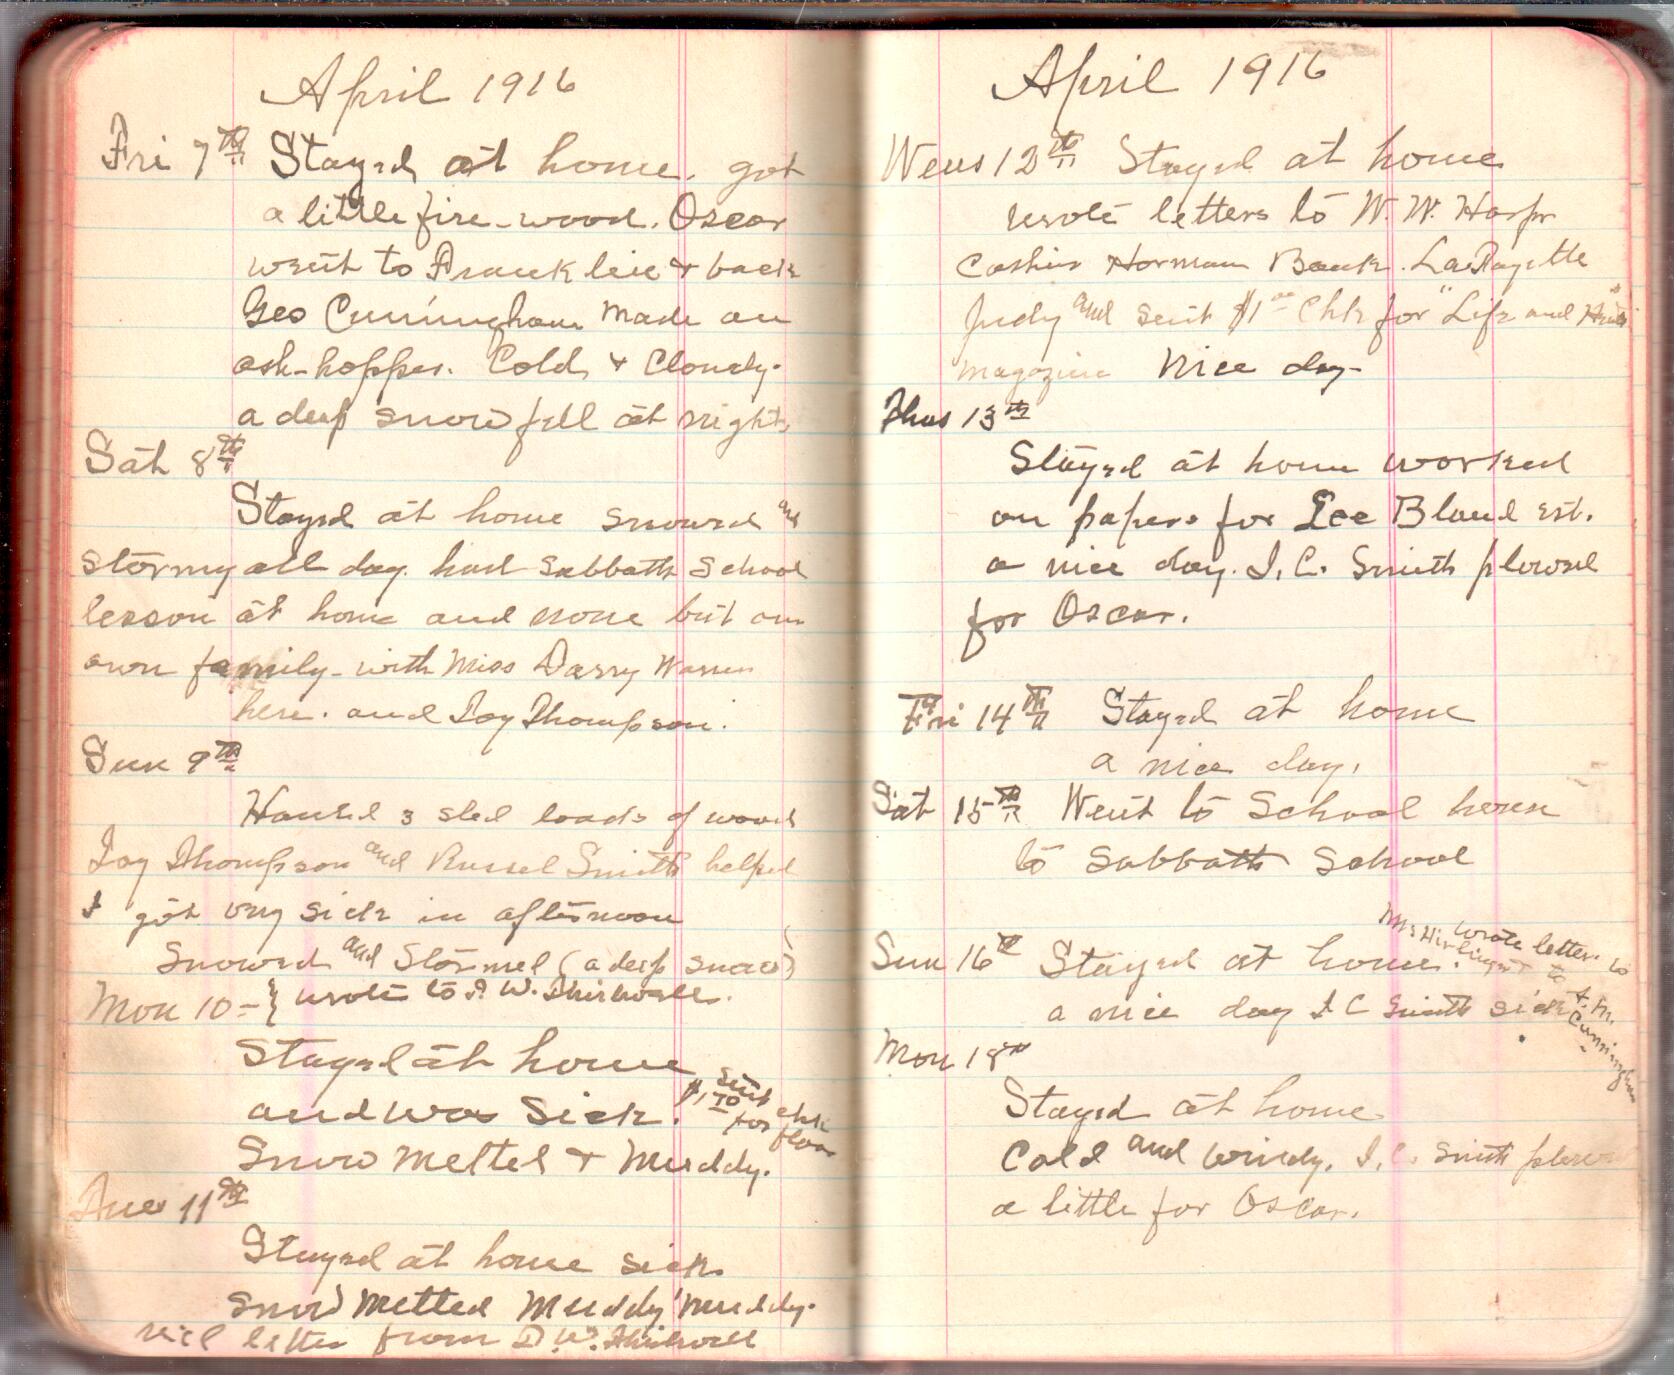 April 1916
Fri 7th Stayed at home. got
a little fire-wood. Oscar
went to Frank lin & back
Geo Cunningham made an
ash-hopper. Cold & Cloudy.
a deep snow fell at night.
Sat 8th
Stayed at home snowed and
stormy all day. had Sabbath School
lesson at home and none but our
own family - with Miss Warren
here. and Joy Thompson.
Sun 9th
Hauled 3 sled loads of wood
Joy Thompson and Russel Smith helped
I got very sick in afternoon
Snowed and Stormed (a deep snow)
Mon 10 - { wrote to W.
Stayed at home
and was Sick.
$1.70 sent chk for
Snow melted & Muddy.
Tue 11th
Stayed at home sick
Snow melted Muddy muddy.
letter from D. W.
April 1916
Wens 12th Stayed at home
wrote letters to W. W. Harpr
Cashier Norman Bank. LaFayette
and sent $1 00 Chk for "Life and
magazine Nice day-
Thus 13th
Stayed at home worked
on papers for Lee Bland est.
a nice day. I. C. Smith plowed
for Oscar.
Fri 14th Stayed at home
a nice day.
Sat 15th Went to School house
to Sabbath School
Sun 16th Stayed at home.
Mrs wrote letter to
a nice day I C Smith sick
Cunningham
Mon 18th
Stayed at home
Cold and windy. I. C. Smith plowed
a little for Oscar.